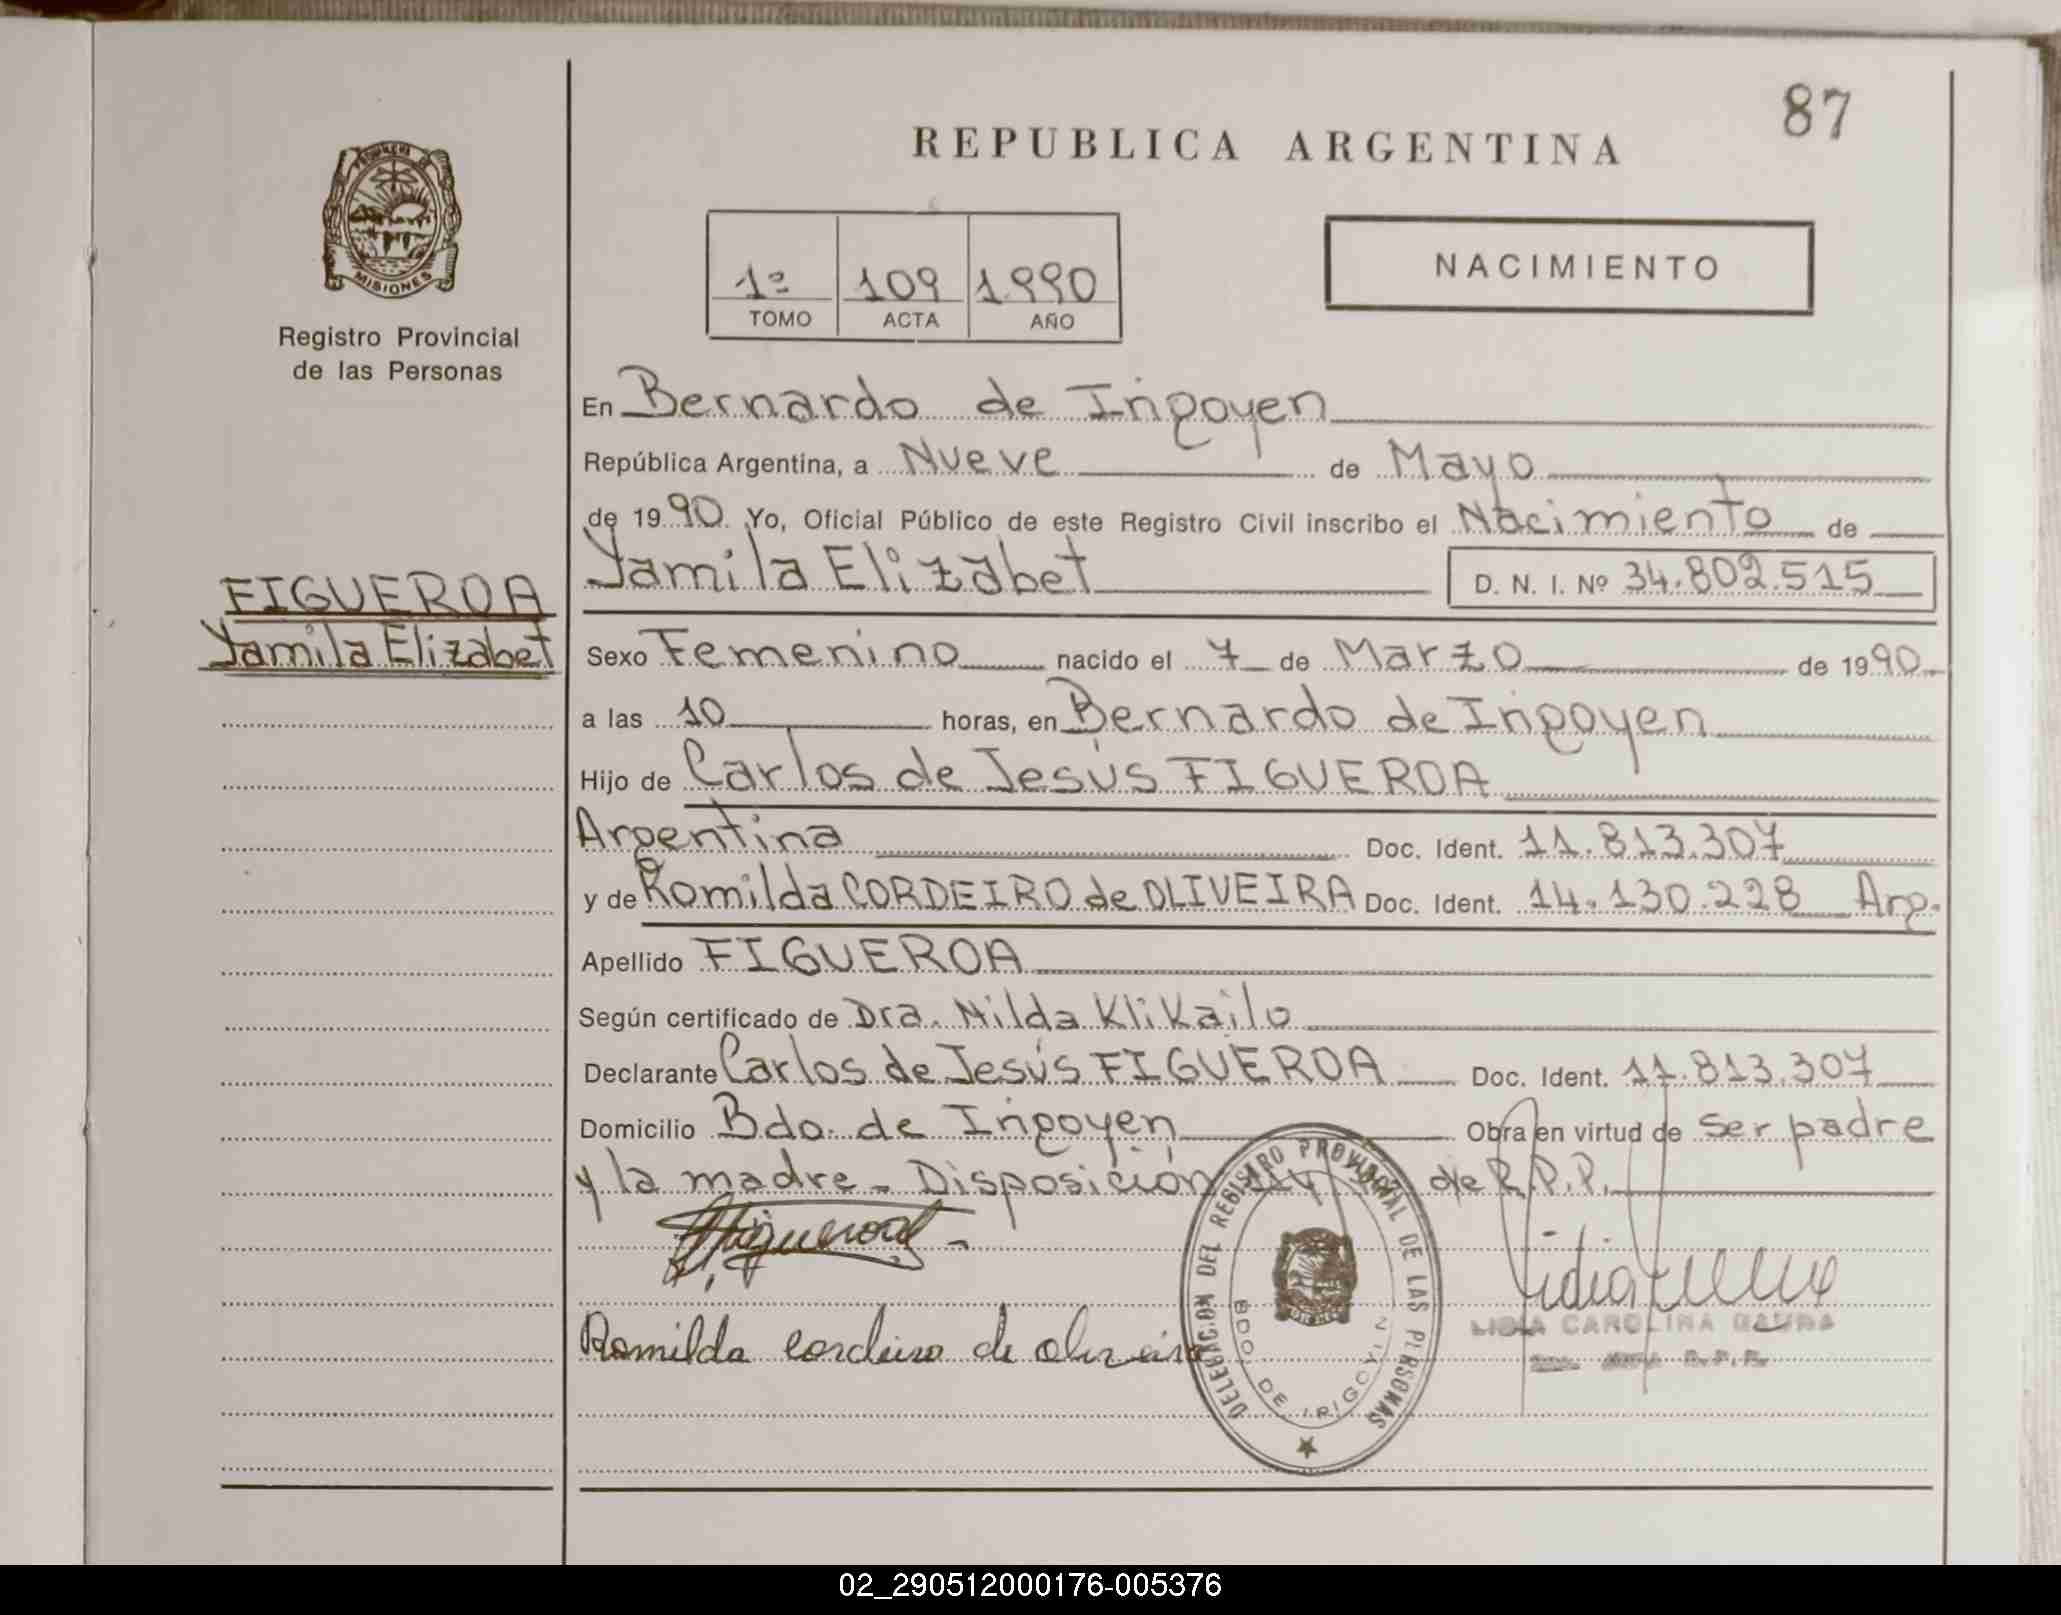 87
REPUBLICA ARGENTINA
PROVINCIA DE
MISIONES
Registro Provincial
de las Personas
1º 109 1990
TOMO ACTA AÑO
NACIMIENTO
En Bernardo de Irigoyen
República Argentina, a Nueve de Mayo
de 1990 Yo, Oficial Público de este Registro Civil inscribo el Nacimiento de
Yamila Elizabet D. N. I. Nº 34.802.515
FIGUEROA
Yamila Elizabet
Sexo Femenino nacido el 7 de Marzo de 1990
a las 10 horas, en Bernardo de Irigoyen
Hijo de Carlos de Jesús FIGUEROA
Argentina Doc. Ident. 11.813.307
y de Romilda CORDEIRO de OLIVEIRA Doc. Ident. 14.130.228 Arg.
Apellido FIGUEROA
Según certificado de Dra. Nilda Klikailo
Declarante Carlos de Jesús FIGUEROA Doc. Ident. 11.813.307
Domicilio Bdo. de Irigoyen Obra en virtud de ser padre
y la madre - Disposición de R.P.P.
Romilda cordeiro de oliveira
DELEGACION DEL REGISTRO PROVINCIAL DE LAS PERSONAS
BDO. DE IRIGOYEN
LIDIA CAROLINA
R.P.P.
02_290512000176-005376